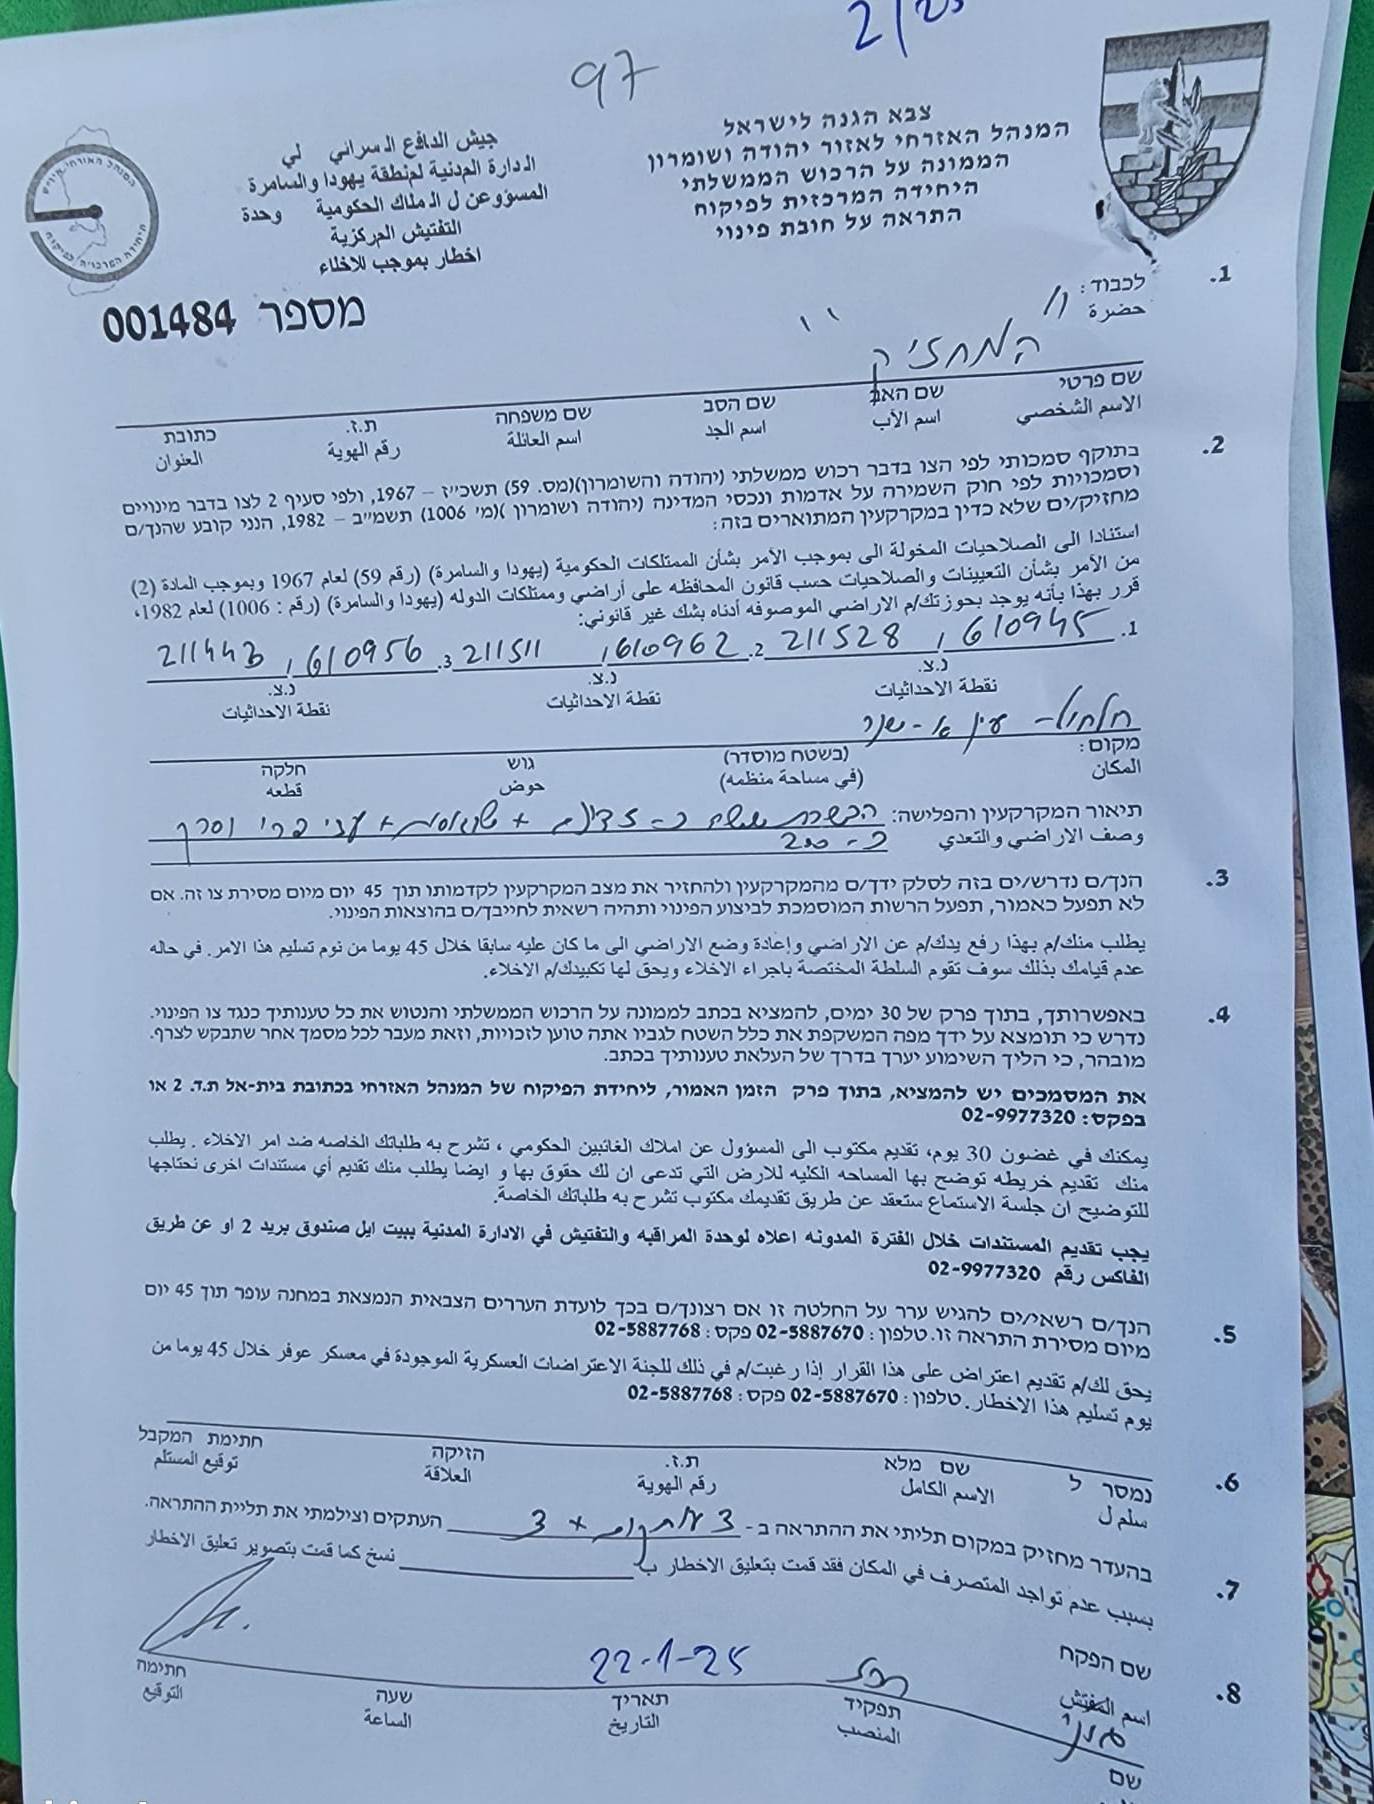 2/25
97
צבא הגנה לישראל
המנהל האזרחי לאזור יהודה ושומרון
הממונה על הרכוש הממשלתי
היחידה המרכזית לפיקוח
התראה על חובת פינוי
جيش الدافع السراني لي
الدارة المدنية لمنطقة يهودا والسامرة
المسؤو عن ل الملاك الحكومية وحدة
التفتيش المركزية
اخطار بموجب للاخلاء
מספר 001484
.1 לכבוד:
حضرة
המחזיק
שם פרטי שם האב שם הסב שם משפחה ת.ז. כתובת
الاسم الشخصي اسم الأب اسم الجد اسم العائلة رقم الهوية العنوان
.2 בתוקף סמכותי לפי הצו בדבר רכוש ממשלתי (יהודה והשומרון)(מס. 59) תשכ"ז – 1967, ולפי סעיף 2 לצו בדבר מינויים
וסמכויות לפי חוק השמירה על אדמות ונכסי המדינה (יהודה ושומרון )(מ' 1006) תשמ"ב – 1982, הנני קובע שהנך/ם
מחזיק/ים שלא כדין במקרקעין המתוארים בזה:
استنادا الى الصلاحيات المخولة الى بموجب الأمر بشأن الممتلكات الحكومية (يهودا والسامرة) (رقم 59) لعام 1967 وبموجب المادة (2)
من الأمر بشأن التعيينات والصلاحيات حسب قانون المحافظه على أراضي وممتلكات الدوله (يهودا والسامرة) (رقم : 1006) لعام 1982،
قرر بهذا بأنه يوجد بحوزتك/م الاراضي الموصوفه أدناه بشك غير قانوني:
.1 610945 , 211528 .2 610962, 211511 .3 610956 , 211443
נ.צ. נ.צ. נ.צ.
نقطة الاحداثيات نقطة الاحداثيات نقطة الاحداثيات
חלחול - עין א-
מקום: (בשטח מוסדר) גוש חלקה
المكان (في مساحة منظمه) حوض قطعه
תיאור המקרקעין והפלישה: הכשרת שטח כ- + + עצי פרי
وصف الاراضي والتعدي כ- 200
.3 הנך/ם נדרש/ים בזה לסלק ידך/ם מהמקרקעין ולהחזיר את מצב המקרקעין לקדמותו תוך 45 יום מיום מסירת צו זה. אם
לא תפעל כאמור, תפעל הרשות המוסמכת לביצוע הפינוי ותהיה רשאית לחייבך/ם בהוצאות הפינוי.
يطلب منك/م بهذا رفع يدك/م عن الاراضي وإعادة وضع الاراضي الى ما كان عليه سابقا خلال 45 يوما من نوم تسليم هذا الامر. في حاله
عدم قيامك بذلك سوف تقوم السلطة المختصة باجراء الاخلاء ويحق لها تكبيدك/م الاخلاء.
.4 באפשרותך, בתוך פרק של 30 ימים, להמציא בכתב לממונה על הרכוש הממשלתי והנטוש את כל טענותיך כנגד צו הפינוי.
נדרש כי תומצא על ידך מפה המשקפת את כלל השטח לגביו אתה טוען לזכויות, וזאת מעבר לכל מסמך אחר שתבקש לצרף.
מובהר, כי הליך השימוע יערך בדרך של העלאת טענותיך בכתב.
את המסמכים יש להמציא, בתוך פרק הזמן האמור, ליחידת הפיקוח של המנהל האזרחי בכתובת בית-אל ת.ד. 2 או
בפקס: 02-9977320
يمكنك في غضون 30 يوم، تقديم مكتوب الى المسؤول عن املاك الغائبين الحكومي ، تشرح به طلباتك الخاصه ضد امر الاخلاء . يطلب
منك تقديم خريطه توضح بها المساحه الكليه للارض التي تدعي ان لك حقوق بها و ايضا يطلب منك تقديم أي مستندات اخرى تحتاجها
للتوضيح ان جلسة الاستماع ستعقد عن طريق تقديمك مكتوب تشرح به طلباتك الخاصة.
يجب تقديم المستندات خلال الفترة المدونه اعلاه لوحدة المراقبه والتفتيش في الادارة المدنية ببيت ايل صندوق بريد 2 او عن طريق
الفاكس رقم 02-9977320
.5 הנך/ם רשאי/ים להגיש ערר על החלטה זו אם רצונך/ם בכך לועדת העררים הצבאית הנמצאת במחנה עופר תוך 45 יום
מיום מסירת התראה זו. טלפון: 02-5887670 פקס: 02-5887768
يحق لك/م تقديم اعتراض على هذا القرار إذا رغبت/م في ذلك للجنة الاعتراضات العسكرية الموجودة في معسكر عوفر خلال 45 يوما من
يوم تسليم هذا الاخطار. טלפון: 02-5887670 פקס: 02-5887768
.6 נמסר ל שם מלא ת.ז. הזיקה חתימת המקבל
سلم ل الاسم الكامل رقم الهوية العلاقة توقيع المستلم
.7 בהעדר מחזיק במקום תליתי את ההתראה ב- 3 עותקים + 3 העתקים וצילמתי את תליית ההתראה.
بسبب عدم تواجد المتصرف في المكان فقد قمت بتعليق الاخطار ب نسخ كما قمت بتصوير تعليق الاخطار
.8 שם הפקח
22-1-25
تاريخ
اسم المفتش תפקיד תאריך שעה חתימה
المنصب التاريخ الساعة التوقيع
שם